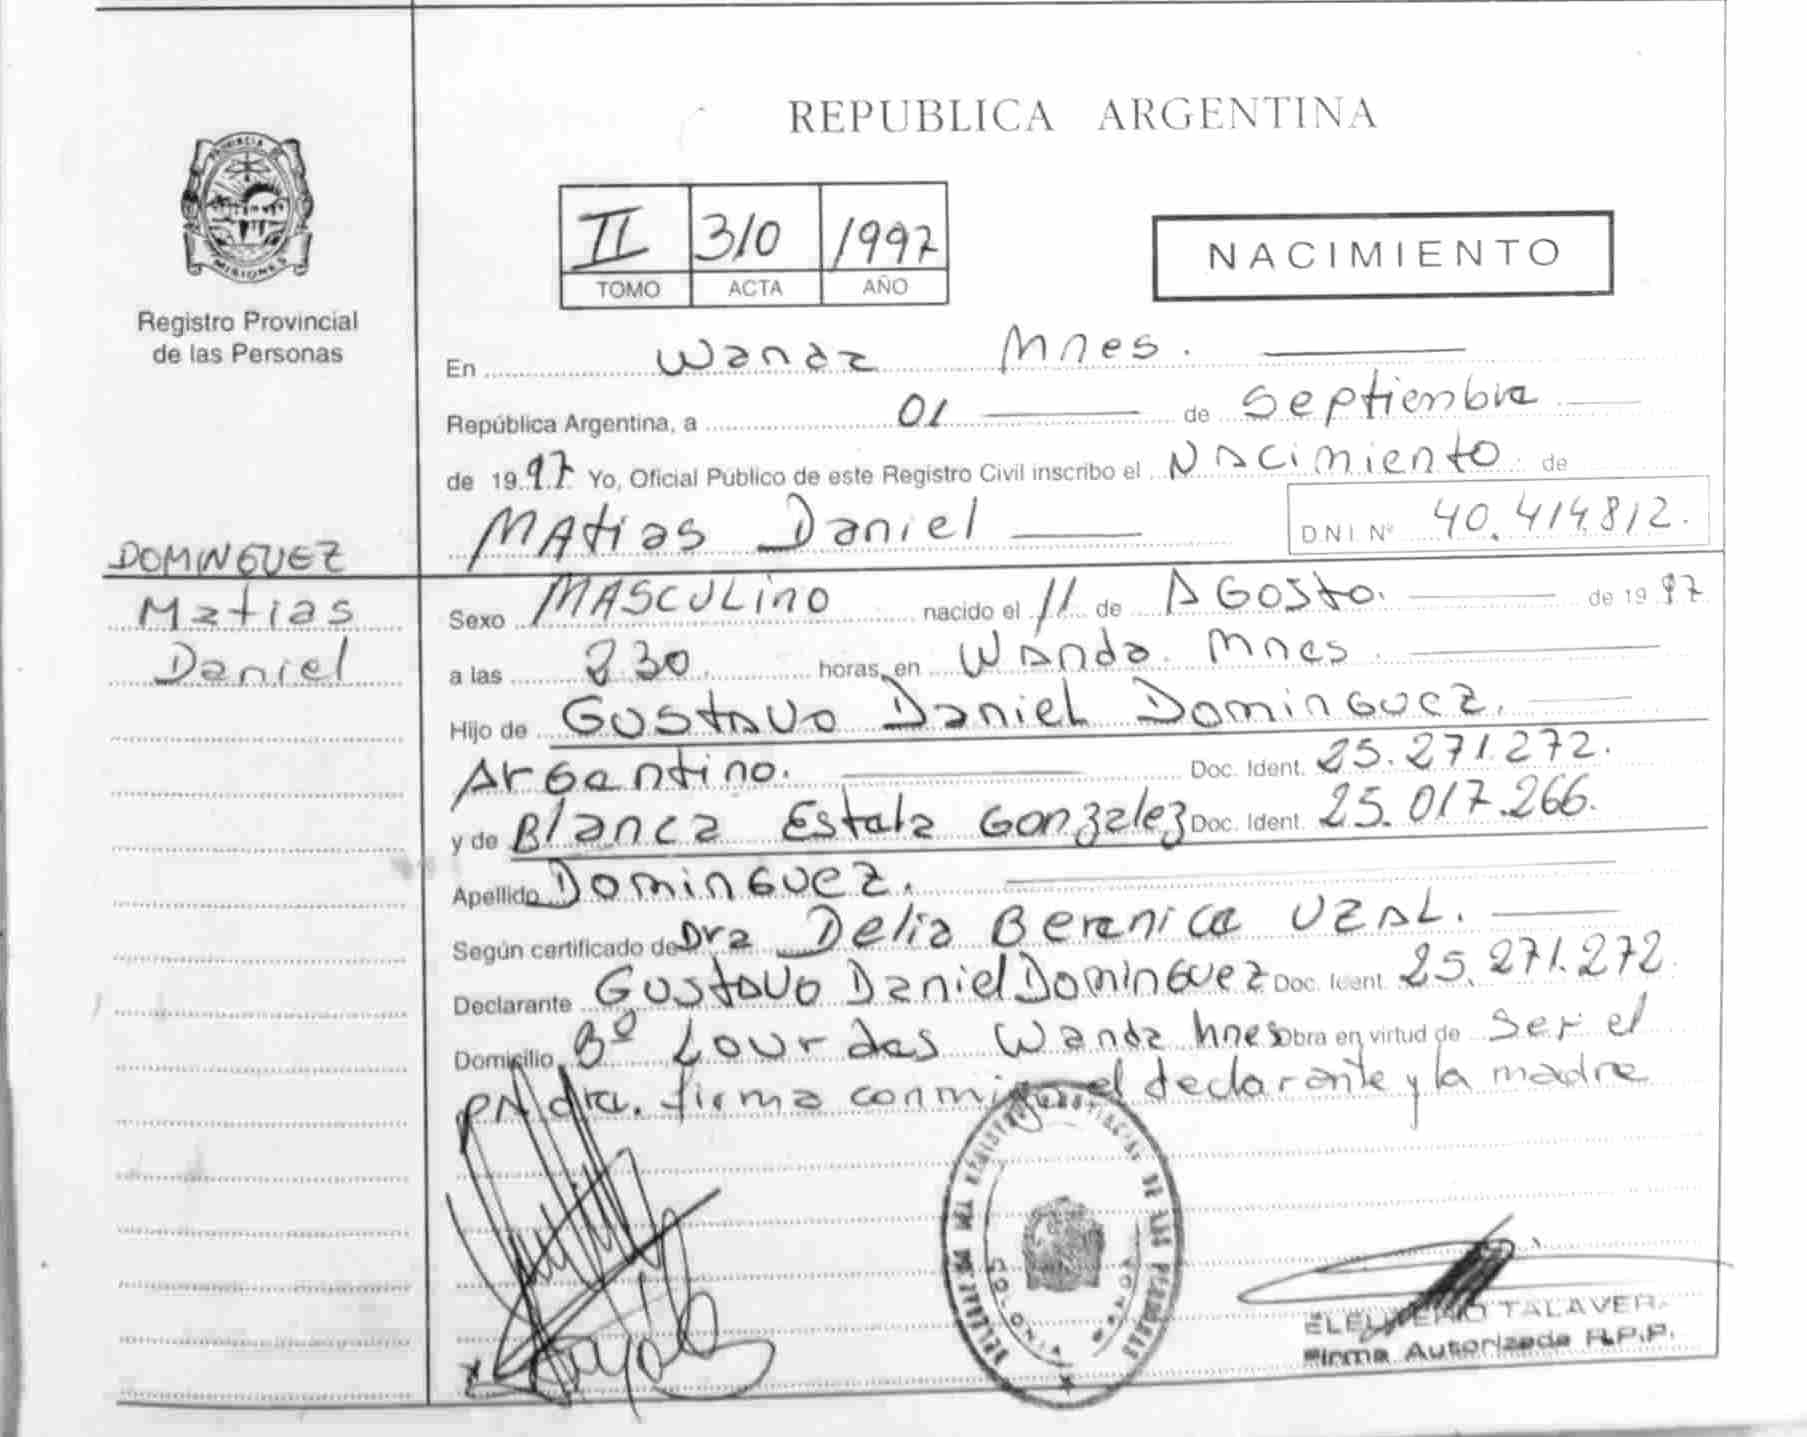 REPUBLICA ARGENTINA
PROVINCIA DE
MISIONES
Registro Provincial
de las Personas
II 310 1997
TOMO ACTA AÑO
NACIMIENTO
En Wanda Mnes.
República Argentina, a 01 de Septiembre
de 1997 Yo, Oficial Público de este Registro Civil inscribo el Nacimiento de
Matias Daniel D.N.I. Nº 40.414.812.
DOMINGUEZ
Matias
Daniel
Sexo MASCULino nacido el 11 de AGosto. de 1997
a las 830. horas, en Wanda. Mnes.
Hijo de Gustavo Daniel Dominguez.
Argentino. Doc. Ident. 25.271.272.
y de Blanca Estela Gonzalez Doc. Ident. 25.017.266.
Apellido Dominguez.
Según certificado de Dra Delia Berenice UZAL.
Declarante Gustavo Daniel Dominguez Doc. Ident. 25.271.272.
Domicilio Bº Lourdes Wanda Mnes Obra en virtud de ser el
padre. firma conmigo el declarante y la madre
COLONIA WANDA
TALAVERA
Firma Autorizada R.P.P.